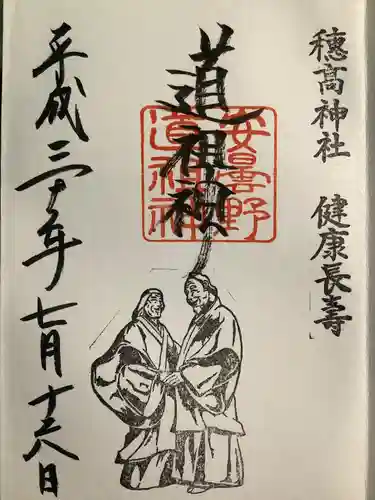 穂髙神社 健康長壽
道祖神
安曇野
道祖神
平成三十年七月十六日